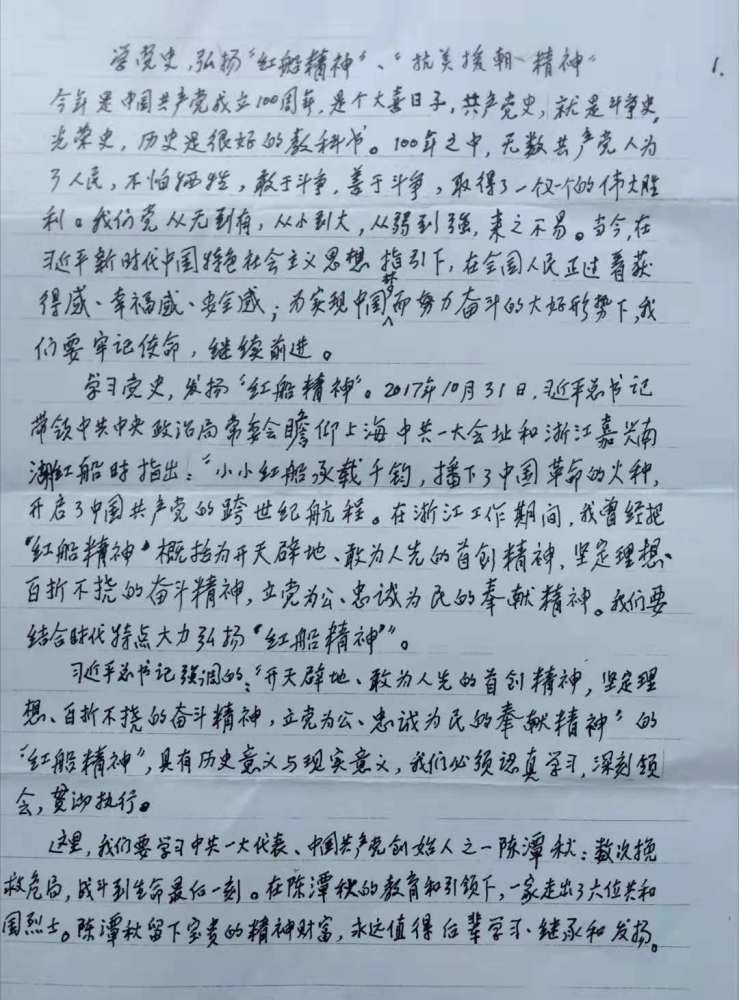 学党史,弘扬“红船精神”、“抗美援朝精神”
1.
今年是中国共产党成立100周年,是个大喜日子,共产党史,就是斗争史,
光荣史,历史是很好的教科书。100年之中,无数共产党人为
了人民,不怕牺牲,敢于斗争,善于斗争,取得了一个又一个的伟大胜
利。我们党从无到有,从小到大,从弱到强,来之不易。当今,在
习近平新时代中国特色社会主义思想指引下,在全国人民正过着获
得感、幸福感、安全感;为实现中国梦而努力奋斗的大好形势下,我
们要牢记使命,继续前进。
学习党史,发扬“红船精神”。2017年10月31日,习近平总书记
带领中共中央政治局常委会瞻仰上海中共一大会址和浙江嘉兴南
湖红船时指出:“小小红船,承载千钧,播下了中国革命的火种,
开启了中国共产党的跨世纪航程。在浙江工作期间,我曾经把
“红船精神”概括为开天辟地、敢为人先的首创精神,坚定理想、
百折不挠的奋斗精神,立党为公、忠诚为民的奉献精神。我们要
结合时代特点大力弘扬“红船精神”。
习近平总书记强调的:“开天辟地、敢为人先的首创精神,坚定理
想、百折不挠的奋斗精神,立党为公、忠诚为民的奉献精神”的
“红船精神”,具有历史意义与现实意义,我们必须认真学习,深刻领
会,贯彻执行。
这里,我们要学习中共一大代表、中国共产党创始人之一陈潭秋:数次挽
救危局,战斗到生命最后一刻。在陈潭秋的教育和引领下,一家走出了六位共和
国烈士。陈潭秋留下宝贵的精神财富,永远值得后辈学习、继承和发扬。